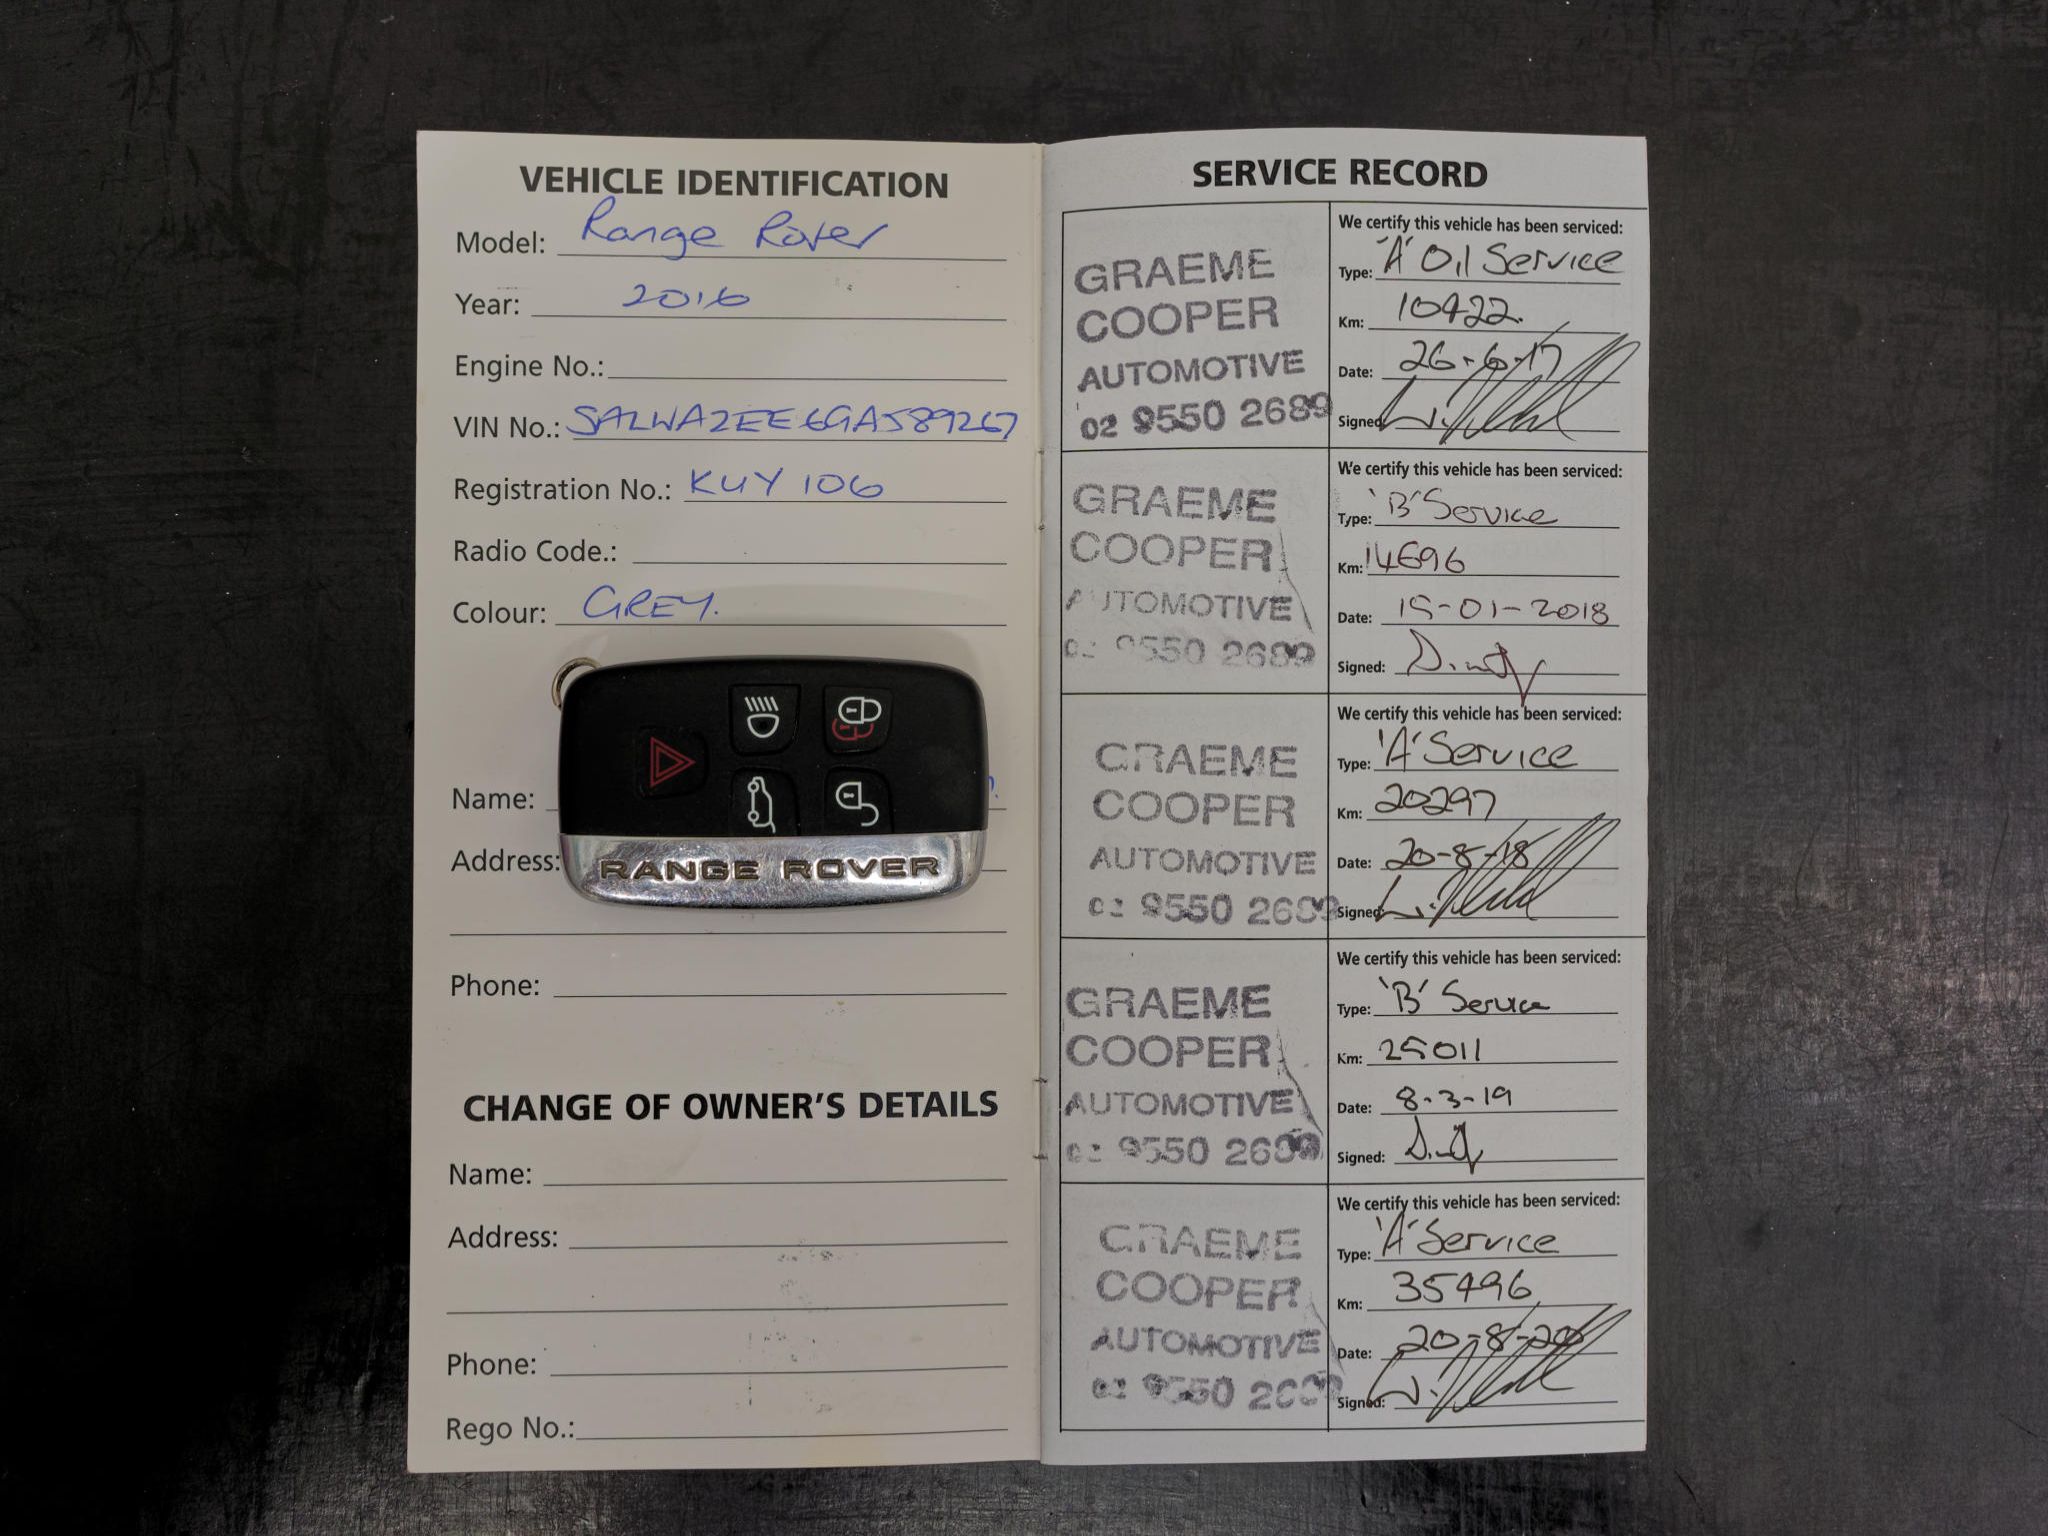 VEHICLE IDENTIFICATION
Model: Range Rover
Year: 2016
Engine No.:
VIN No.: SALWA2EE6GA589267
Registration No.: KUY 106
Radio Code.:
Colour: GREY.
Name:
Address:
RANGE ROVER
Phone:
CHANGE OF OWNER'S DETAILS
Name:
Address:
Phone:
Rego No.:
SERVICE RECORD
GRAEME
COOPER
AUTOMOTIVE
02 9550 2689
We certify this vehicle has been serviced:
Type: 'A' Oil Service
Km: 10422.
Date: 26-6-17
Signed:
GRAEME
COOPER
AUTOMOTIVE
02 9550 2689
We certify this vehicle has been serviced:
Type: 'B' Service
Km: 14696
Date: 15-01-2018
Signed:
GRAEME
COOPER
AUTOMOTIVE
02 9550 2689
We certify this vehicle has been serviced:
Type: 'A' Service
Km: 20297
Date: 20-8-18
Signed:
GRAEME
COOPER
AUTOMOTIVE
02 9550 2689
We certify this vehicle has been serviced:
Type: 'B' Service
Km: 25011
Date: 8-3-19
Signed:
GRAEME
COOPER
AUTOMOTIVE
02 9550 2689
We certify this vehicle has been serviced:
Type: 'A' Service
Km: 35496
Date: 20-8-20
Signed: